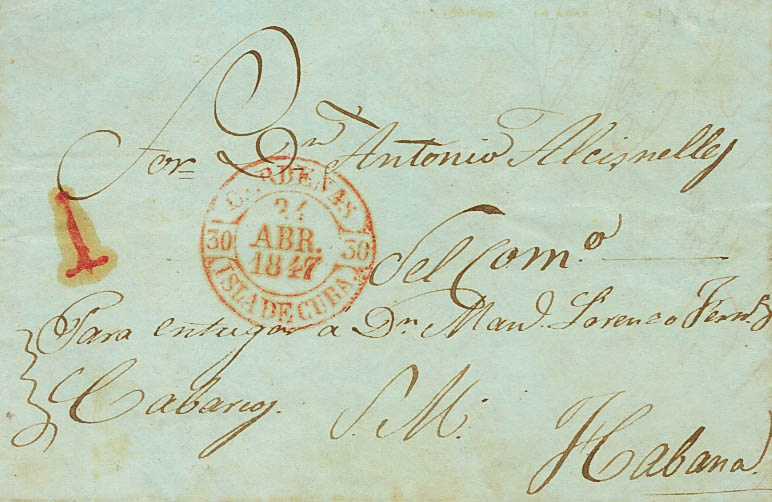 Sor Dn Antonio Alcisnelles
1
CARDENAS
24
ABR.
1847
30 30
ISLA DE CUBA
del Com.o
Para entregar a Dn. Manl. Lorenco Fernz
Cabarcos. S. M.
Habana.